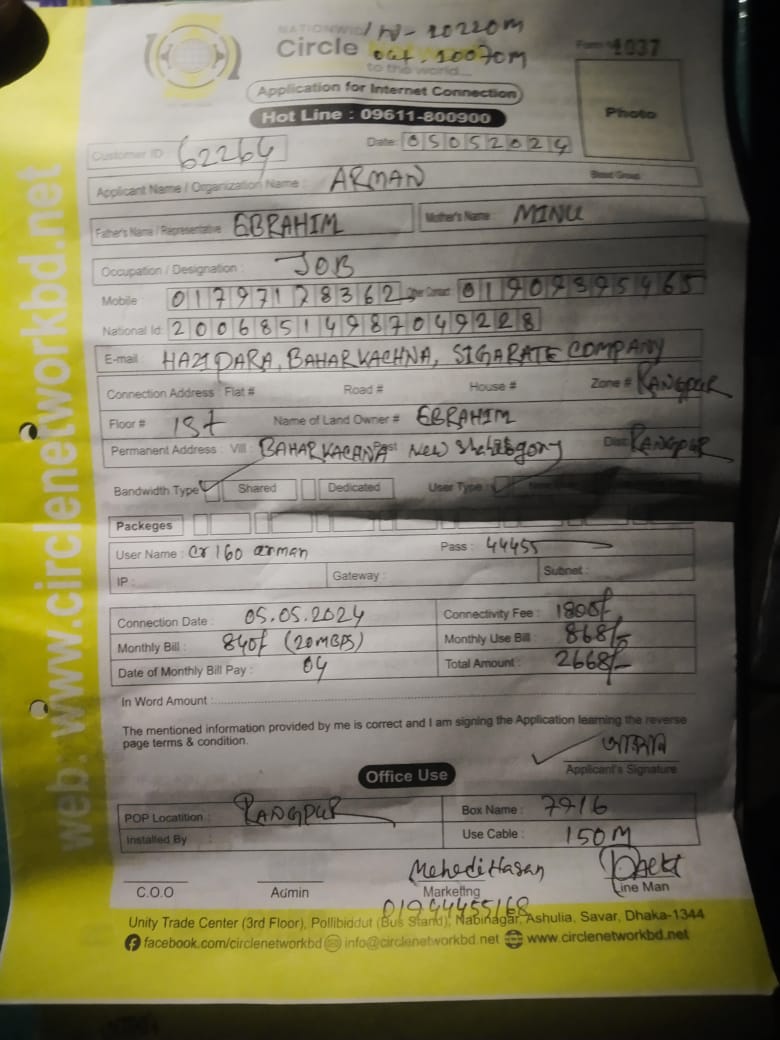 NATIONWIDE IN - 10220m
Circle out - 10070m
to the world... Form 1037
Application for Internet Connection
Hot Line : 09611-800900
Photo
Customer ID 62264 Date: 05052024
Applicant Name / Organization Name : ARMAN Blood Group:
Father's Name / Representative EBRAHIM Mother's Name : MINU
Occupation / Designation : JOB
Mobile 01797178362 Other Contact 01909395465
National Id: 20068514987049228
E-mail HAZIPARA, BAHARKACHNA, SIGARATE COMPANY
Connection Address : Flat # Road # House # Zone # RANGPUR
Floor # 1st Name of Land Owner # EBRAHIM
Permanent Address : Vill: BAHARKACHNA Post New Dist: RANGPUR
Bandwidth Type Shared Dedicated User Type :
Packeges
User Name : cr160 arman Pass : 44455
IP : Gateway : Subnet :
Connection Date : 05.05.2024 Connectivity Fee : 1800/-
Monthly Bill : 840/- (20MBPS) Monthly Use Bill : 868/-
Date of Monthly Bill Pay : 04 Total Amount : 2668/-
In Word Amount :
The mentioned information provided by me is correct and I am signing the Application learning the reverse
page terms & condition.
আরমান
Applicant's Signature
Office Use
POP Locatition : RANGPUR Box Name : 7916
Installed By : Use Cable : 150M
Mehedi Hasan
C.O.O Admin Marketing Line Man
Unity Trade Center (3rd Floor), Pollibiddut (Bus Stand), Nabinagar, Ashulia, Savar, Dhaka-1344
facebook.com/circlenetworkbd info@circlenetworkbd.net www.circlenetworkbd.net
web: www.circlenetworkbd.net